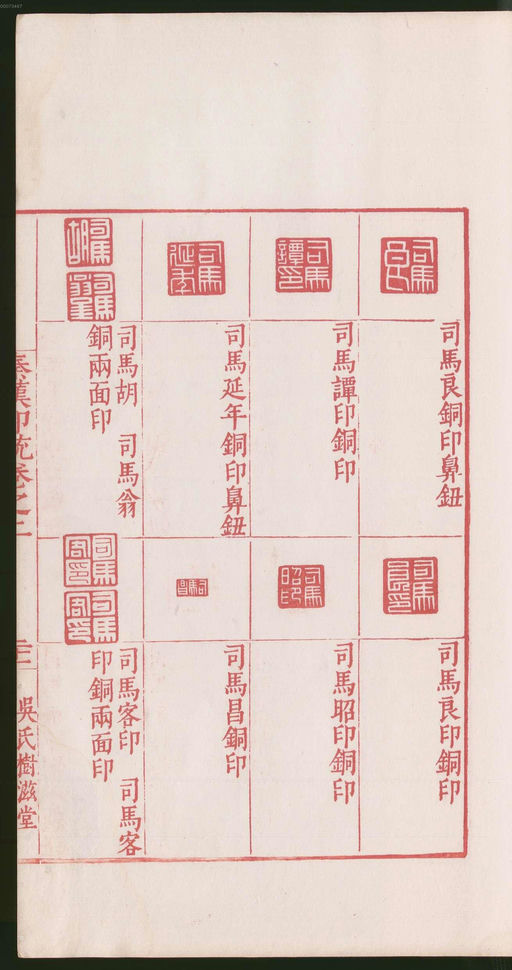 司馬良銅印鼻鈕
司馬譚印銅印
司馬延年銅印鼻鈕
司馬胡　司馬翁
銅兩面印
司馬良印銅印
司馬昭印銅印
司馬昌銅印
司馬客印　司馬客
印銅兩面印
秦漢印統卷之二
吳氏樹滋堂
00073447